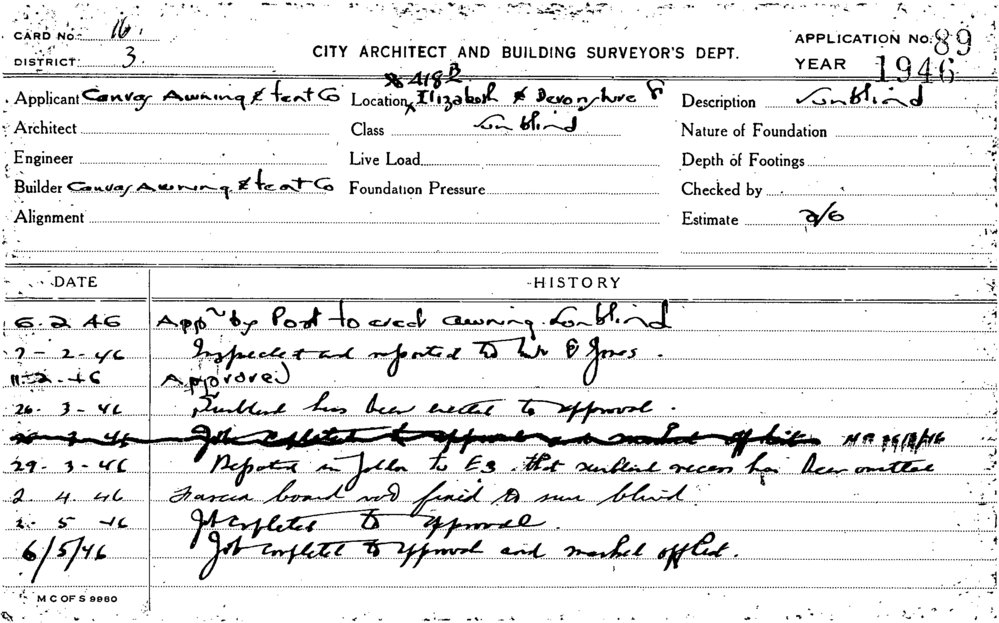 CARD No. 16.
DISTRICT 3.
CITY ARCHITECT AND BUILDING SURVEYOR'S DEPT.
APPLICATION No. 89
YEAR 1946
418B
Applicant Canvas Awning & tent Co Location Elizabeth & Devonshire St Description Sunblind
Architect Class Sunblind Nature of Foundation
Engineer Live Load Depth of Footings
Builder Canvas Awning & tent Co Foundation Pressure Checked by
Alignment Estimate 2/6
DATE HISTORY
6.2.46 Appn by Post to erect awning Sunblind
7-2-46 Inspected and reported to Mr E Jones.
11-2-46 Approved
26.3-46 Sunblind has been erected to approval.
Job completed to approval and marked off list
29.3-46 Reported in folder to E.S. that sunblind recess has been omitted
2.4.46 Fascia board not fixed to sun blind
2.5.46 Job completed to approval.
6/5/46 Job complete to approval and marked off list.
M C OF S 9980